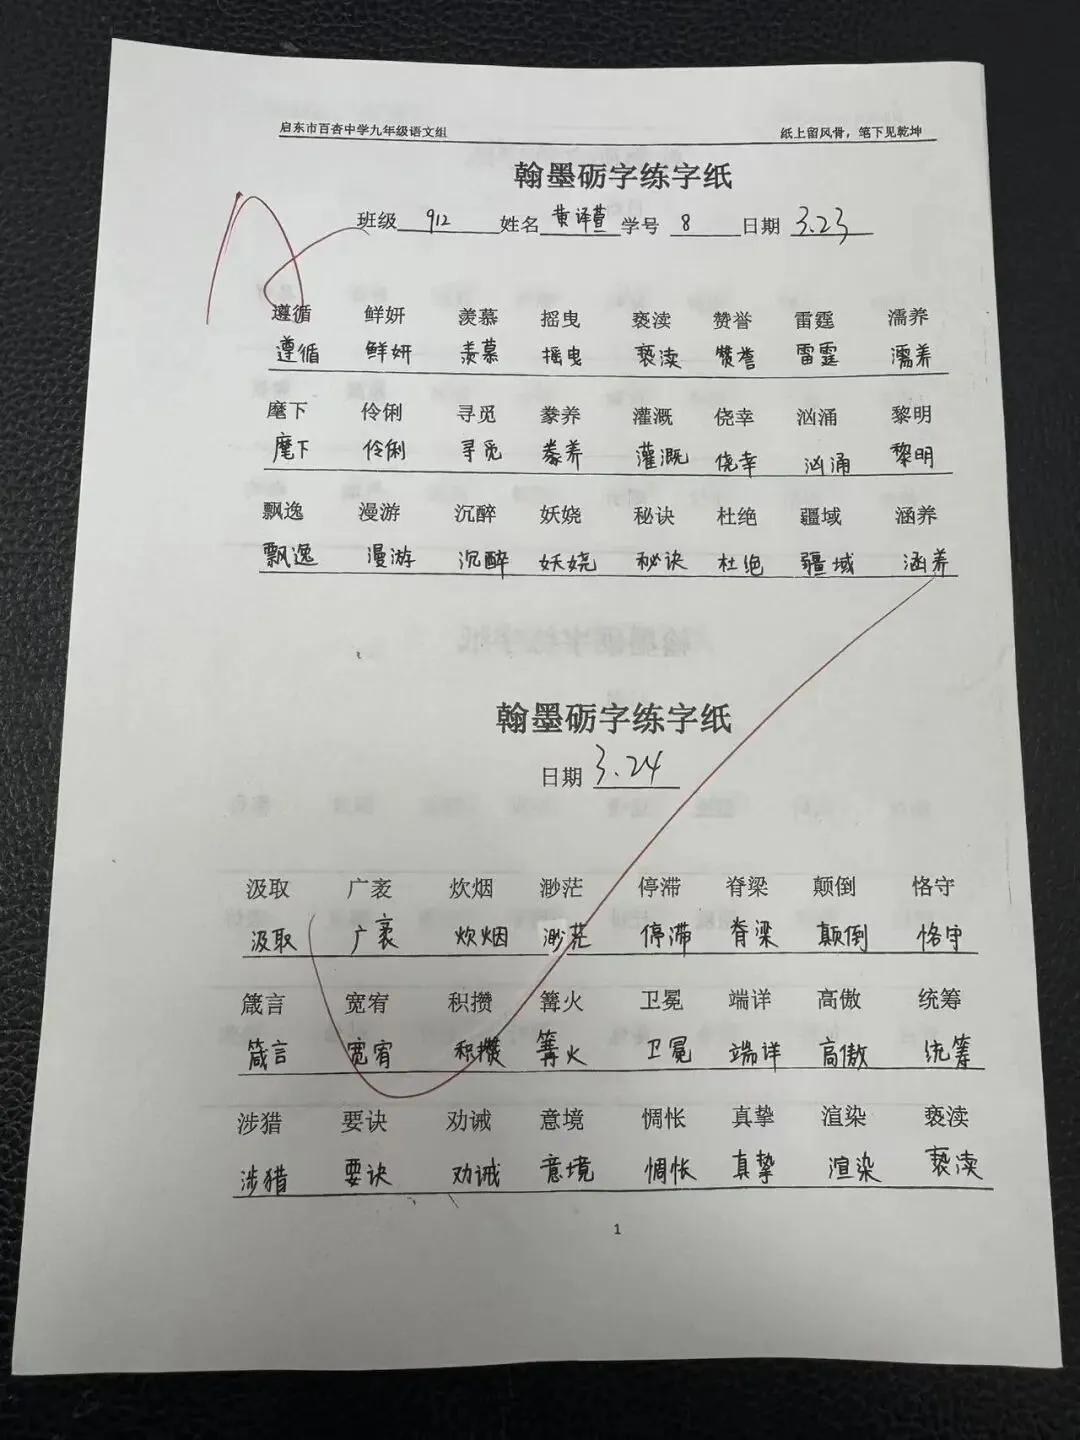 启东市百杏中学九年级语文组 纸上留风骨，笔下见乾坤
翰墨砺字练字纸
班级 912 姓名 黄译萱 学号 8 日期 3.23
遵循 鲜妍 羡慕 摇曳 亵渎 赞誉 雷霆 濡养
遵循 鲜妍 羡慕 摇曳 亵渎 赞誉 雷霆 濡养
麾下 伶俐 寻觅 豢养 灌溉 侥幸 汹涌 黎明
麾下 伶俐 寻觅 豢养 灌溉 侥幸 汹涌 黎明
飘逸 漫游 沉醉 妖娆 秘诀 杜绝 疆域 涵养
飘逸 漫游 沉醉 妖娆 秘诀 杜绝 疆域 涵养
翰墨砺字练字纸
日期 3.24
汲取 广袤 炊烟 渺茫 停滞 脊梁 颠倒 恪守
汲取 广袤 炊烟 渺茫 停滞 脊梁 颠倒 恪守
箴言 宽宥 积攒 篝火 卫冕 端详 高傲 统筹
箴言 宽宥 积攒 篝火 卫冕 端详 高傲 统筹
涉猎 要诀 劝诫 意境 惆怅 真挚 渲染 亵渎
涉猎 要诀 劝诫 意境 惆怅 真挚 渲染 亵渎
1